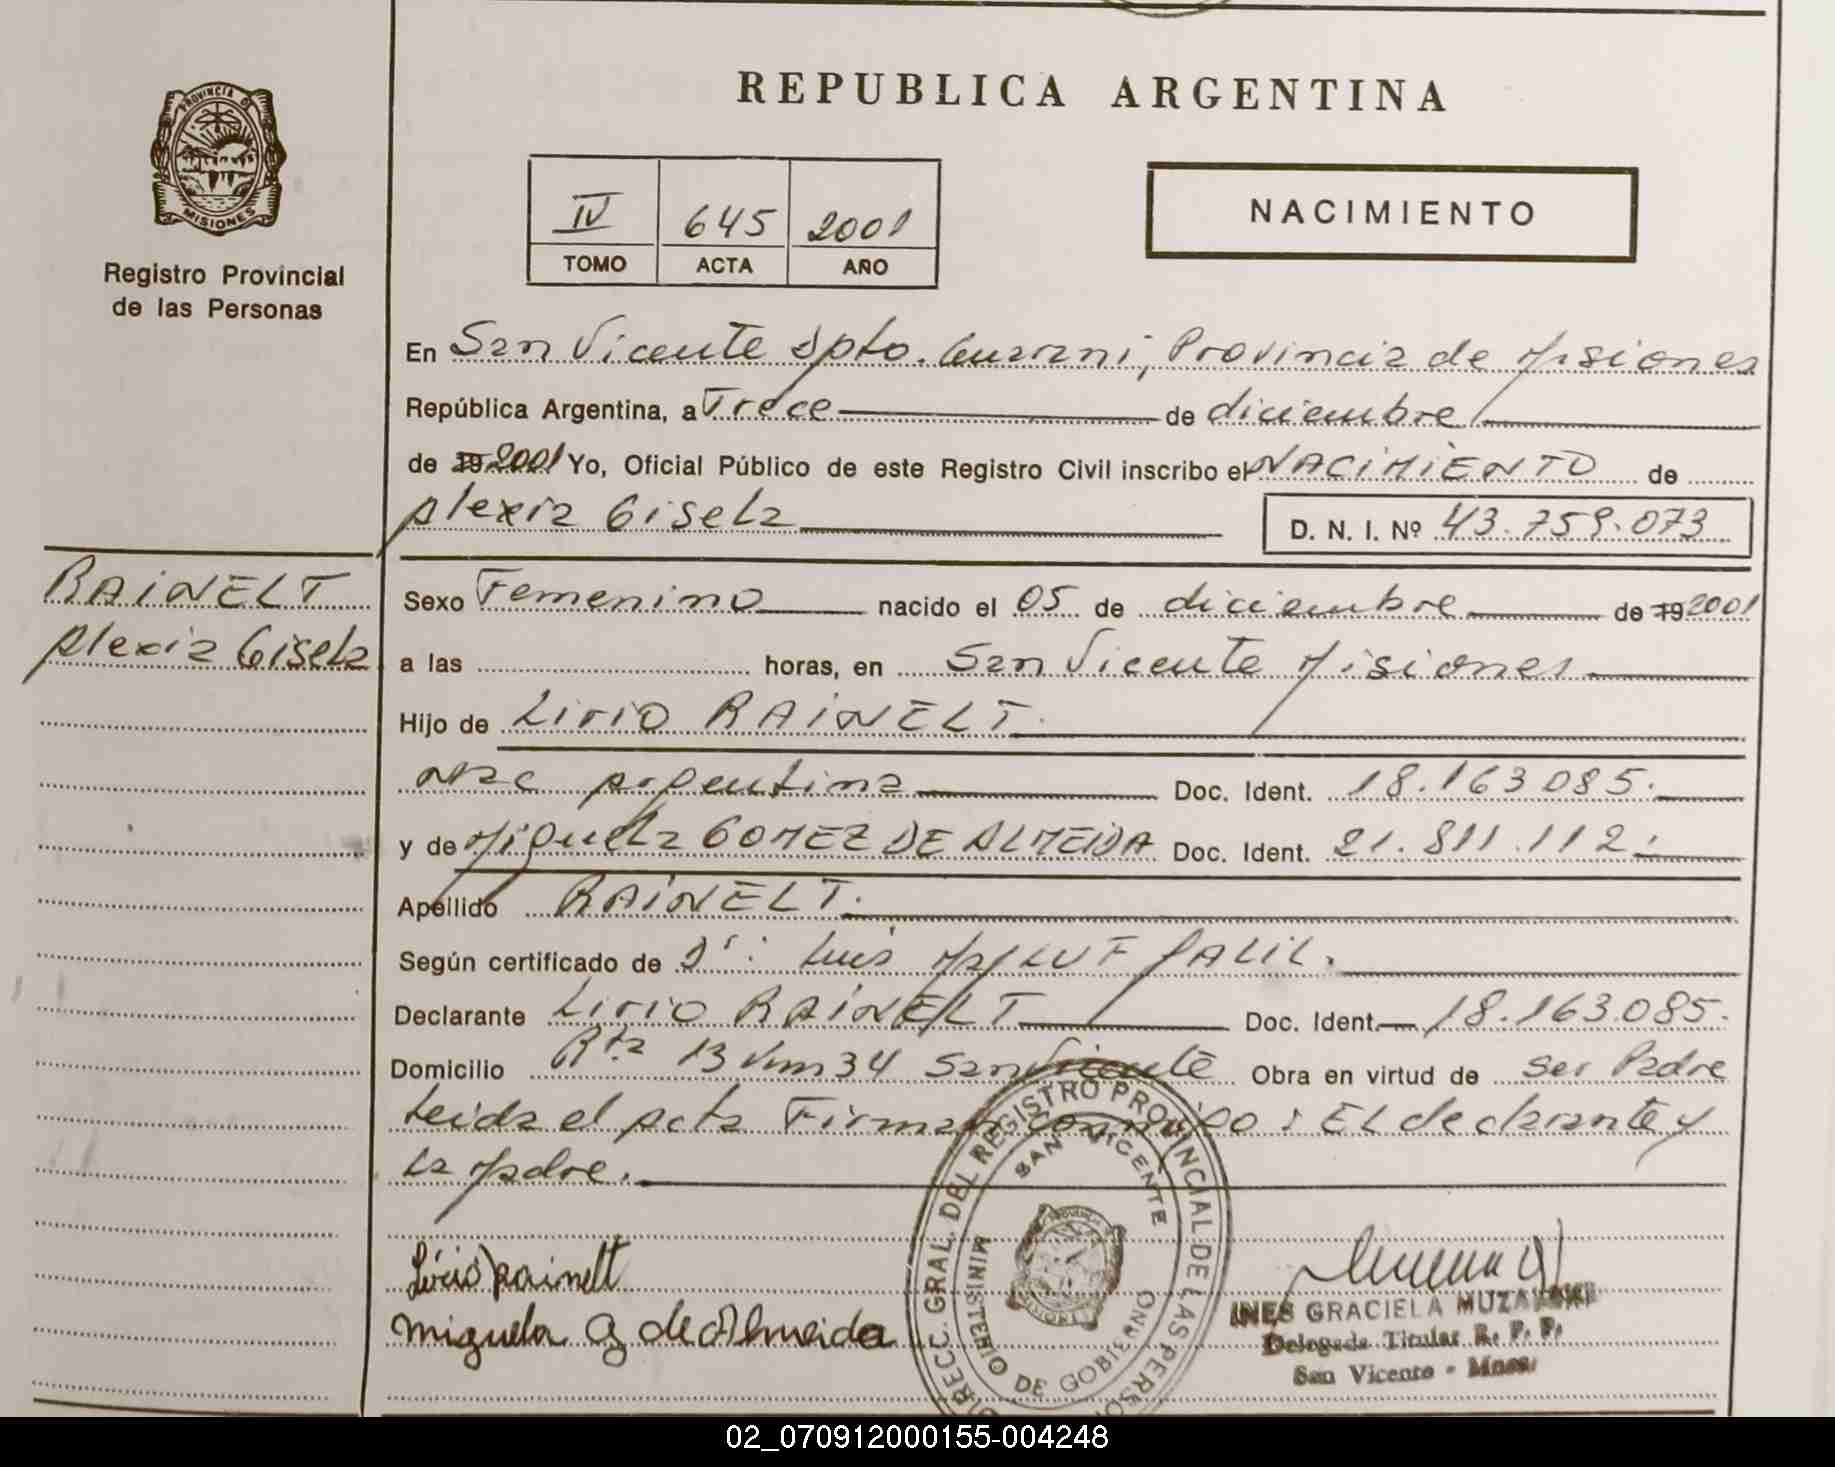 REPUBLICA ARGENTINA
PROVINCIA DE
MISIONES
Registro Provincial
de las Personas
IV 645 2001
TOMO ACTA AÑO
NACIMIENTO
En San Vicente Dpto. Guarani, Provincia de Misiones
República Argentina, a Trece de diciembre
de 19 2001 Yo, Oficial Público de este Registro Civil inscribo el NACIMIENTO de
Alexia Gisela
D. N. I. Nº 43.759.073
RAINELT
Alexia Gisela
Sexo Femenino nacido el 05 de diciembre de 19 2001
a las horas, en San Vicente Misiones
Hijo de Lirio RAINELT.
Nac Argentina Doc. Ident. 18.163 085.
y de Miguela GOMEZ DE ALMEIDA Doc. Ident. 21.811.112.
Apellido RAINELT.
Según certificado de Dr: Luis JALIL.
Declarante Lirio RAINELT Doc. Ident. 18.163.085.
Domicilio Rta 13 km 34 San Vicente Obra en virtud de ser Padre
Leida el acta Firman conmigo: El declarante y
la Madre.
Lirio Rainelt
Miguela G de Almeida
DIRECC. GRAL. DEL REGISTRO PROVINCIAL DE LAS PERSO
SAN VICENTE
MINISTERIO DE GOBIERNO
INES GRACIELA
Delegada Titular R. P. P.
San Vicente - Mnes.
02_070912000155-004248